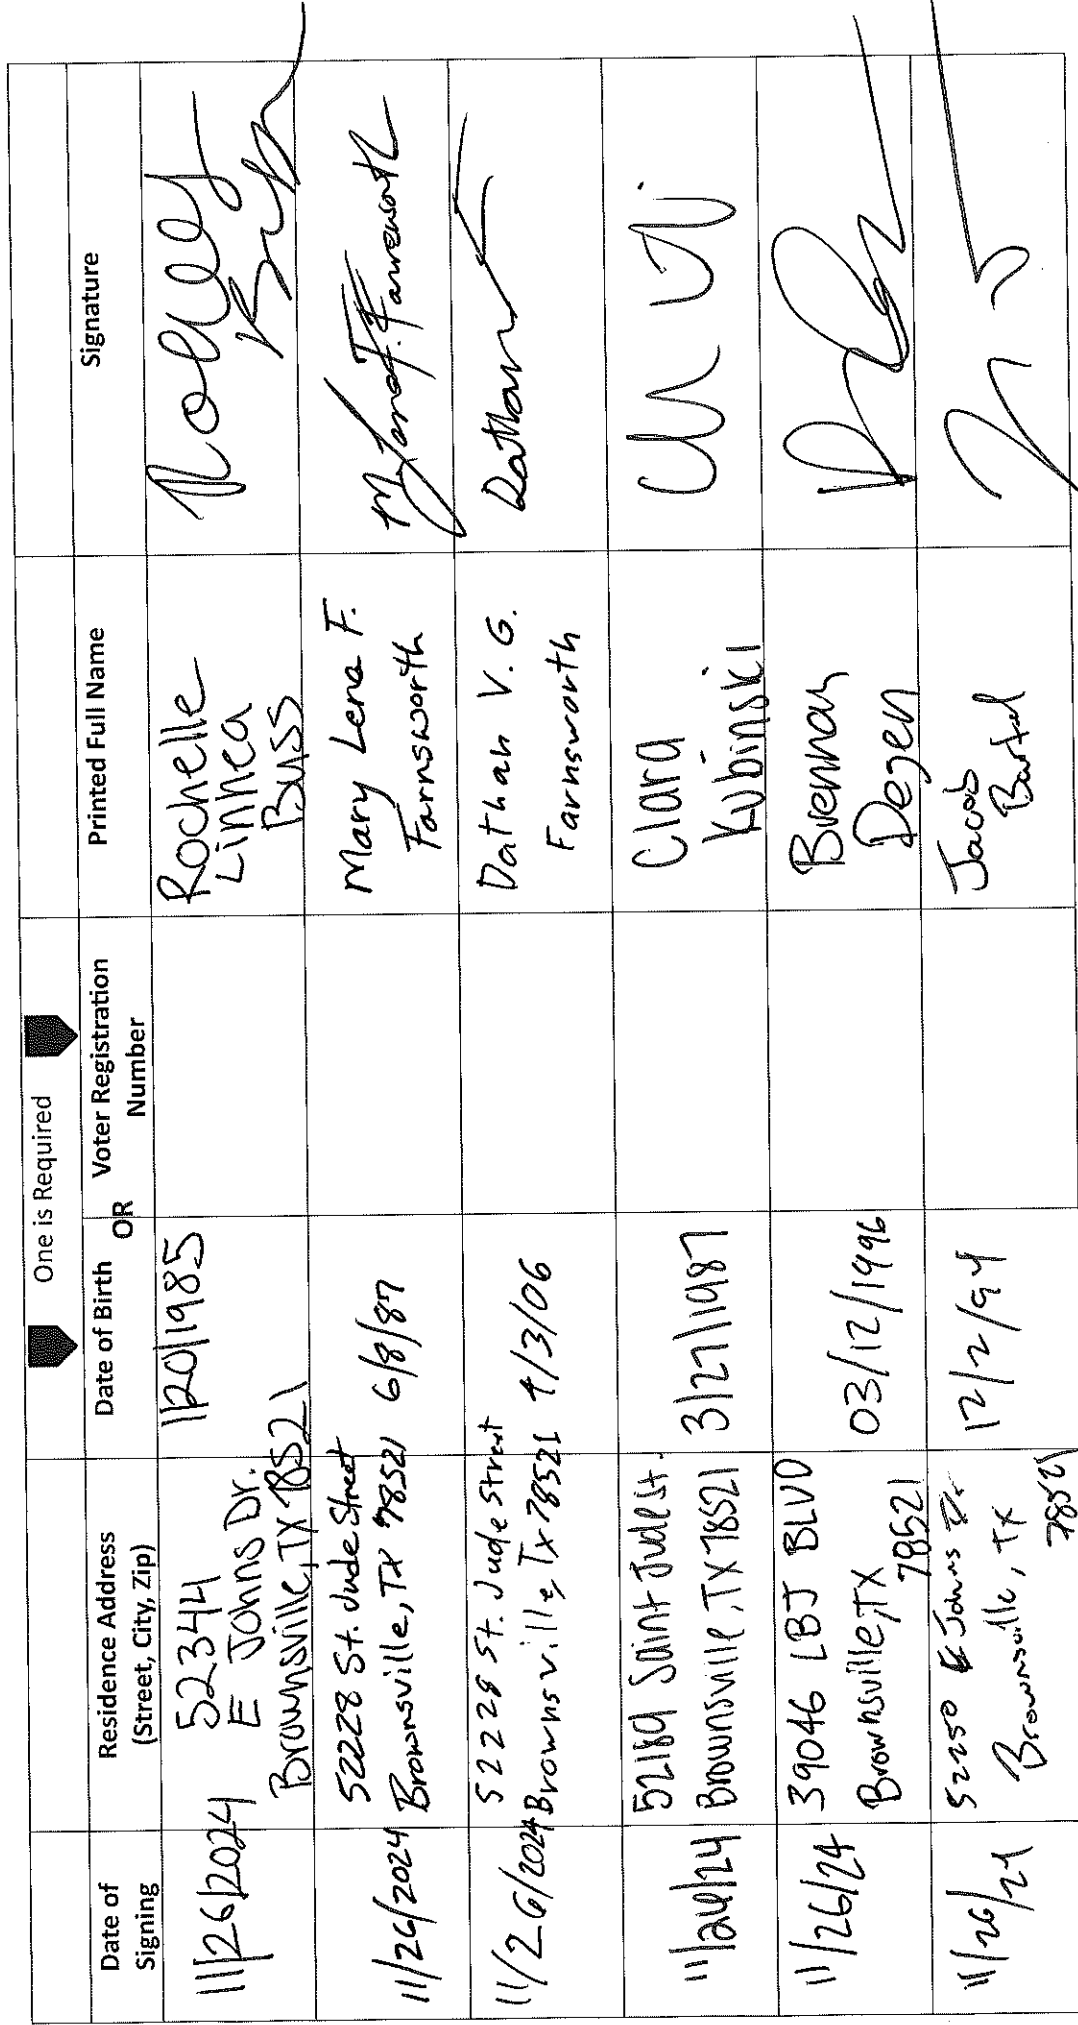 One is Required
Date of Signing
Residence Address (Street, City, Zip)
Date of Birth
OR
Voter Registration Number
Printed Full Name
Signature
11/26/2024
52344
E Johns Dr.
Brownsville, TX 78521
1/20/1985
Rochelle
Linnea
Buss
11/26/2024
52228 St. Jude Street
Brownsville, TX 78521
6/8/87
Mary Lena F.
Farnsworth
Mary Lena F. Farnsworth
11/26/2024
52228 St. Jude Street
Brownsville, Tx 78521
4/3/06
Dathan V. G.
Farnsworth
Dathan
11/26/24
52189 Saint Jude St.
Brownsville, TX 78521
3/27/1987
Clara
Kubinski
11/26/24
39046 LBJ BLVD
Brownsville, TX
78521
03/12/1996
Brennan
Degen
11/26/24
52250 E Johns Dr
Brownsville, Tx
78521
12/2/94
Jacob
Bartel